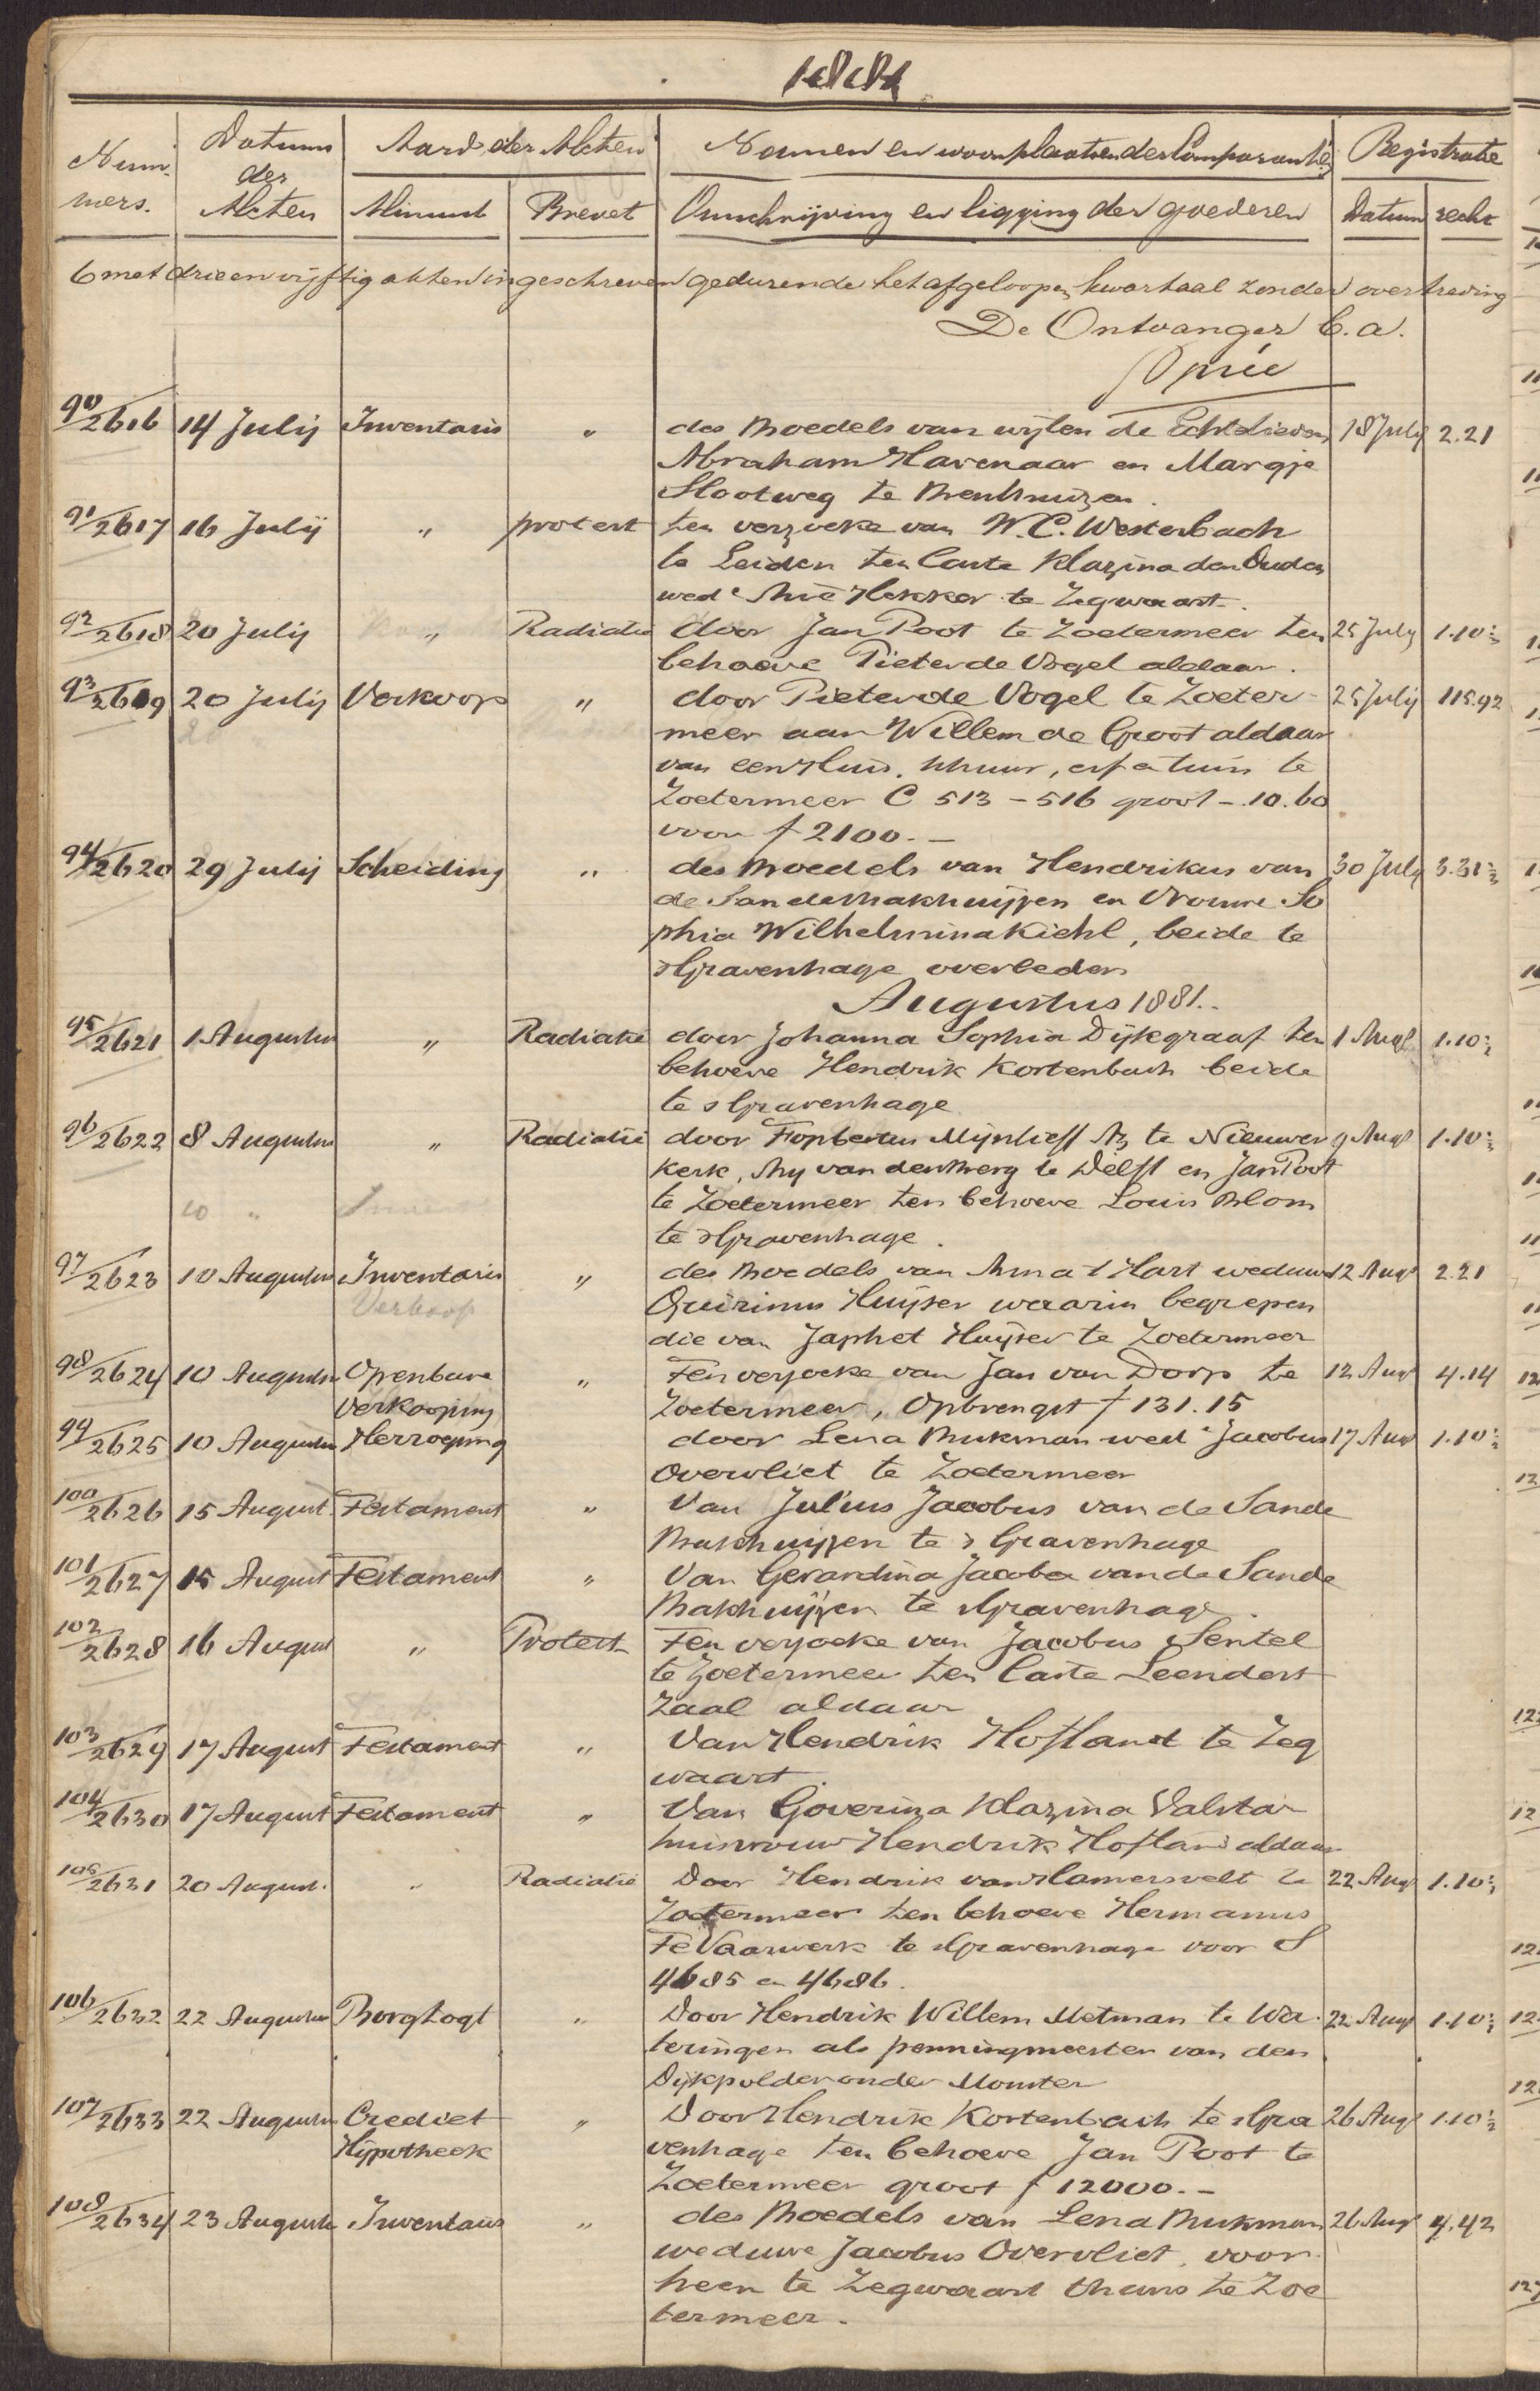 1881
Num- Datum Aard der Akten Namen en woonplaatsen der Comparanten Registratie
mers. der
Akten Minuut Brevet Omschrijving en ligging der goederen Datum recht
met drie en vijftig akten ingeschreven gedurende het afgeloopen kwartaal zonder overtreding
De Ontvanger C. a.
90/2616 14 Julij Inventaris " des Boedels van wijlen de Echtelieden 18 July 2.21
Abraham Havenaar en Margje
Slootweg te Benthuizen.
91/2617 16 Julij " protest ten verzoeke van W. C. Westerbach
te Leiden ten laste Klazina den Ouden
wed e Hekker te Zegwaart.
92/2618 20 Julij " Radiatie door Jan Poot te Zoetermeer ten 25 July 1.10½
behoeve Pieter de Vogel aldaar.
93/2619 20 Julij Verkoop " door Pieter de Vogel te Zoeter- 25 July 115.92
meer aan Willem de Groot aldaar
van een Huis, schuur, erf en tuin te
Zoetermeer C 513 - 516 groot - .10.60
voor f 2100.-
94/2620 29 Julij Scheiding " des Boedels van Hendrikus van 30 July 3.31½
de Sande Bakhuijzen en Vrouwe So
phia Wilhelmina Kiehl, beide te
sGravenhage overleden
Augustus 1881.
95/2621 1 Augustus " Radiatie door Johanna Sophia Dijkgraaf ten 1 Augs 1.10½
behoeve Hendrik Kortenbach beide
te sGravenhage
96/2622 8 Augustus " Radiatie door Fopbertus Mijnlieff Az te Nieuwer 9 Augs 1.10½
kerk, Ary van den Berg te Delft en Jan Poot
10 " Invent te Zoetermeer ten behoeve Louis Blom
te sGravenhage.
97/2623 10 Augustus Inventaris " des Boedels van Anna 't Hart weduwe 12 Augs 2.21
Verkoop Quirinus Huijser waarin begrepen
die van Japhet Huijser te Zoetermeer
98/2624 10 Augustus Openbare " Ten verzoeke van Jan van Dorp te 12 Augs 4.14
Verkooping Zoetermeer, Opbrengst f 131.15
99/2625 10 Augustus Herroeping door Lena Bukman wed e Jacobus 17 Augs 1.10½
Overvliet te Zoetermeer
100/2626 15 August. Testament " Van Julius Jacobus van de Sande
Bakhuijzen te s Gravenhage
101/2627 15 August Testament " Van Gerardina Jacoba van de Sande
Bakhuijzen te sGravenhage.
102/2628 16 August " Protest Ten verzoeke van Jacobus Sentel
te Zoetermeer ten laste Leendert
Zaal aldaar
103/2629 17 August Testament " Van Hendrik Hofland te Zeg
waart.
104/2630 17 August Testament " Van Goverina Klazina Valstar
huisvrouw Hendrik Hofland aldaar
105/2631 20 August. " Radiatie Door Hendrik van Hamersvelt te 22 Augs 1.10½
Zoetermeer ten behoeve Hermanus
Te Vaarwerk te sGravenhage voor S
4685 en 4686.
106/2632 22 Augustus Borgtogt " Door Hendrik Willem Metman te Wa- 22 Augs 1.10½
teringen als penningmeester van den
Dijkpolder onder Monster
107/2633 22 Augustus Crediet " Door Hendrik Kortenbach te sGra 26 Augs 1.10½
Hijpotheek venhage ten behoeve Jan Poot te
Zoetermeer groot f 12000.-
108/2634 23 Augustus Inventaris " des Boedels van Lena Bukman 26 Augs 4.42
weduwe Jacobus Overvliet, voor-
heen te Zegwaart thans te Zoe
termeer.